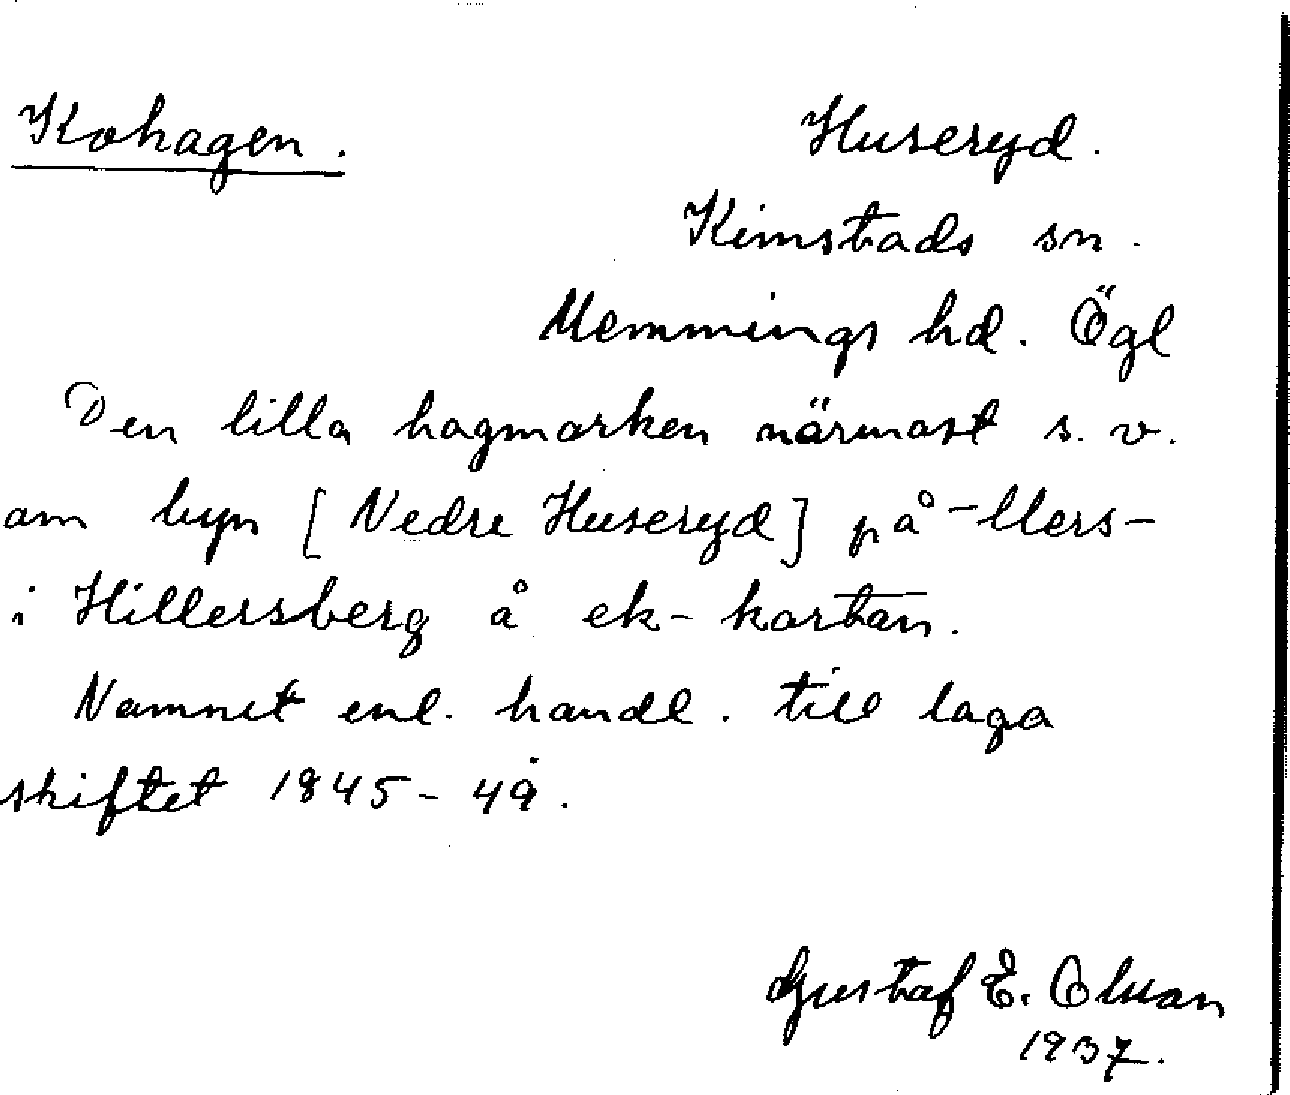 Kohagen. Huseryd.
Kimstads sn.
Memmings hd. Ögl
Den lilla hagmarken närmast s. v.
om byn [Nedre Huseryd] på -llers-
i Hillersberg å ek-kartan.
Namnet enl. handl. till laga
skiftet 1845-49.
Gustaf E. Olsson
1937.